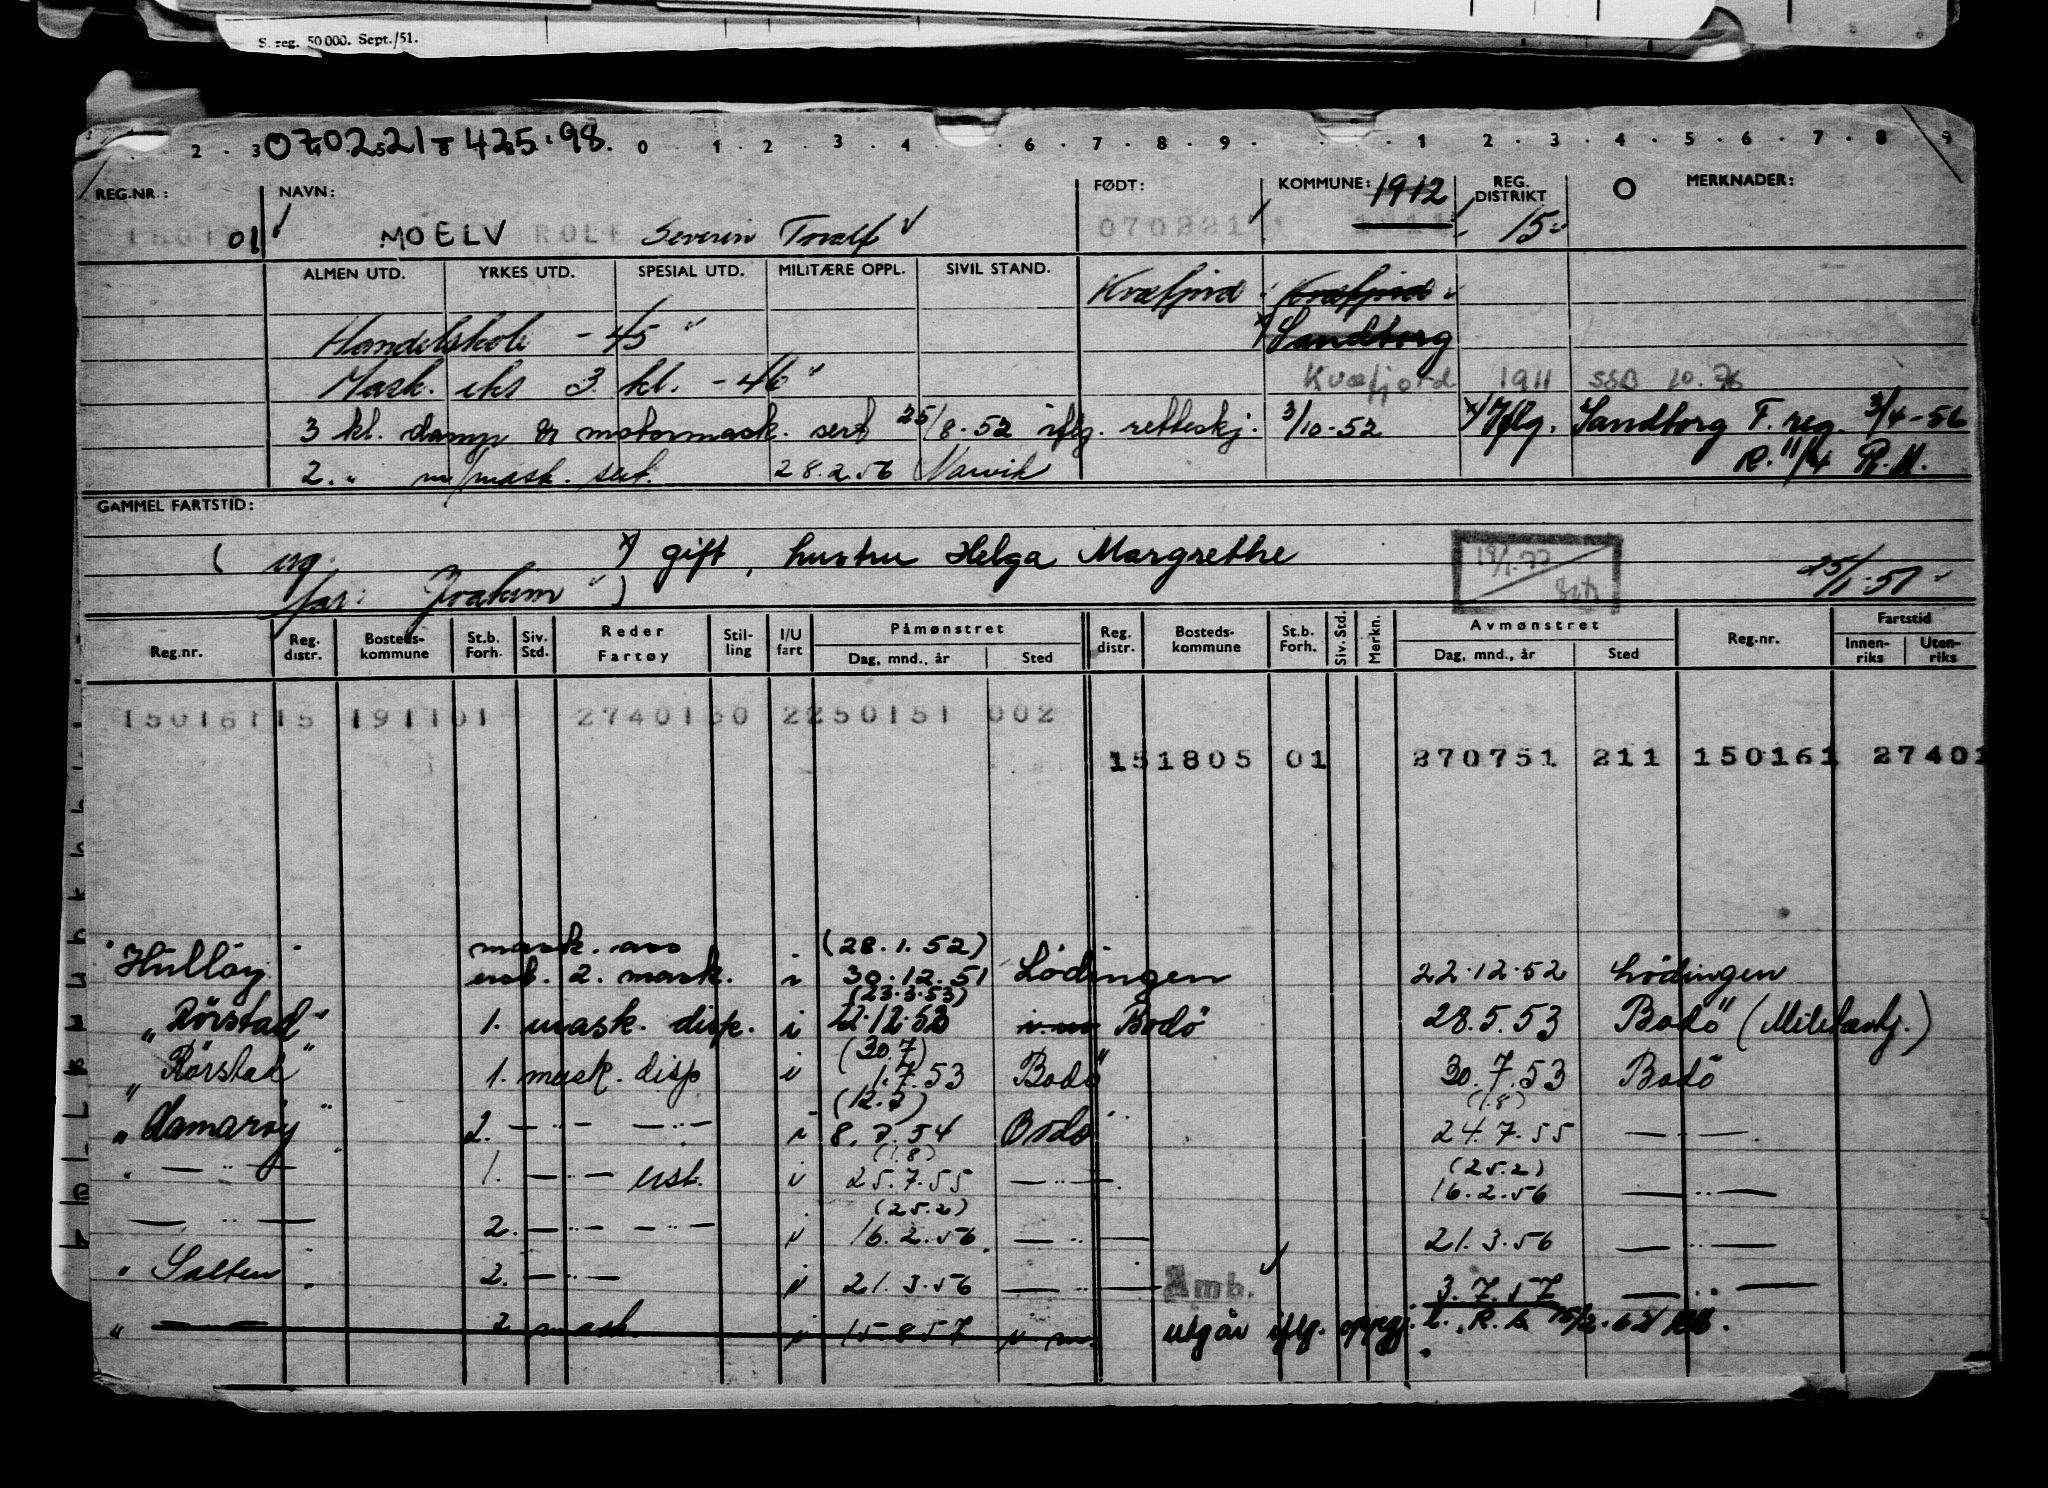 S. reg. 50 000. Sept./51.
070221-425.98.
2 . 3 0 1 2 3 4 6 7 8 9 1 2 3 4 5 6 7 8 9
REG.NR.: NAVN: FØDT: KOMMUNE: 1912 REG. DISTRIKT O MERKNADER:
01 MOELV ROLF Severin Toralf 070221 1911 15
ALMEN UTD. YRKES UTD. SPESIAL UTD. MILITÆRE OPPL. SIVIL STAND. Kvæfjord Kvæfjord
Handelskole - 45 " x) Sandtorg
Mask. eks 3. kl. - 46 " Kvæfjord 1911 SSB 10.76
3 kl. damp & motormask. sert 25/8.52 iflg. retteskj. 3/10-52 x) Iflg. Sandtorg F. reg. 3/4-56
2. " m/mask. sert. 28.2.56 Narvik R. 11/4 R.M.
GAMMEL FARTSTID:
( ug. x) gift, hustru Helga Margrethe
far: Joakim " ) 25/1-51
Reg.nr. Reg. distr. Bosteds-kommune St.b. Forh. Siv. Std. Reder Fartøy Stil-ling I/U fart Påmønstret Dag, mnd., år Sted Reg. distr. Bosteds-kommune St.b. Forh. Siv. Std. Merkn. Avmønstret Dag, mnd., år Sted Reg.nr. Fartstid Innen-riks Uten-riks
15016115 191101 2740130 2250151 002
151805 01 270751 211 150161 27401
mask. ass (28.1.52)
"Hulløy" ust. 2. mask. i 30.12.51 Lödingen 22.12.52 Lödingen
(23.3.53)
"Rörstad" 1. mask. disp. i 22.12.52 Bodö 28.5.53 Bodö (Militærtj.)
(30.7)
"Rörstad" 1. mask. disp i 1.7.53 Bodö 30.7.53 Bodö
(12.7) (1.8)
"Hamarøy" 2. — " — — " — i 8.7.54 Bodö 24.7.55 — " —
(1.8) (25.2)
" — " — 1. — " — ust. i 25.7.55 — " — 16.2.56 — " —
(25.2)
— " — 2. — " — — " — i 16.2.56 — " — 21.3.56 — " —
"Salten" 2. — " — i 21.3.56 — " — Amb. 3.7.57 — " —
" — 2 mask. i 15.8.57 i m. utgår iflg. oppgj.